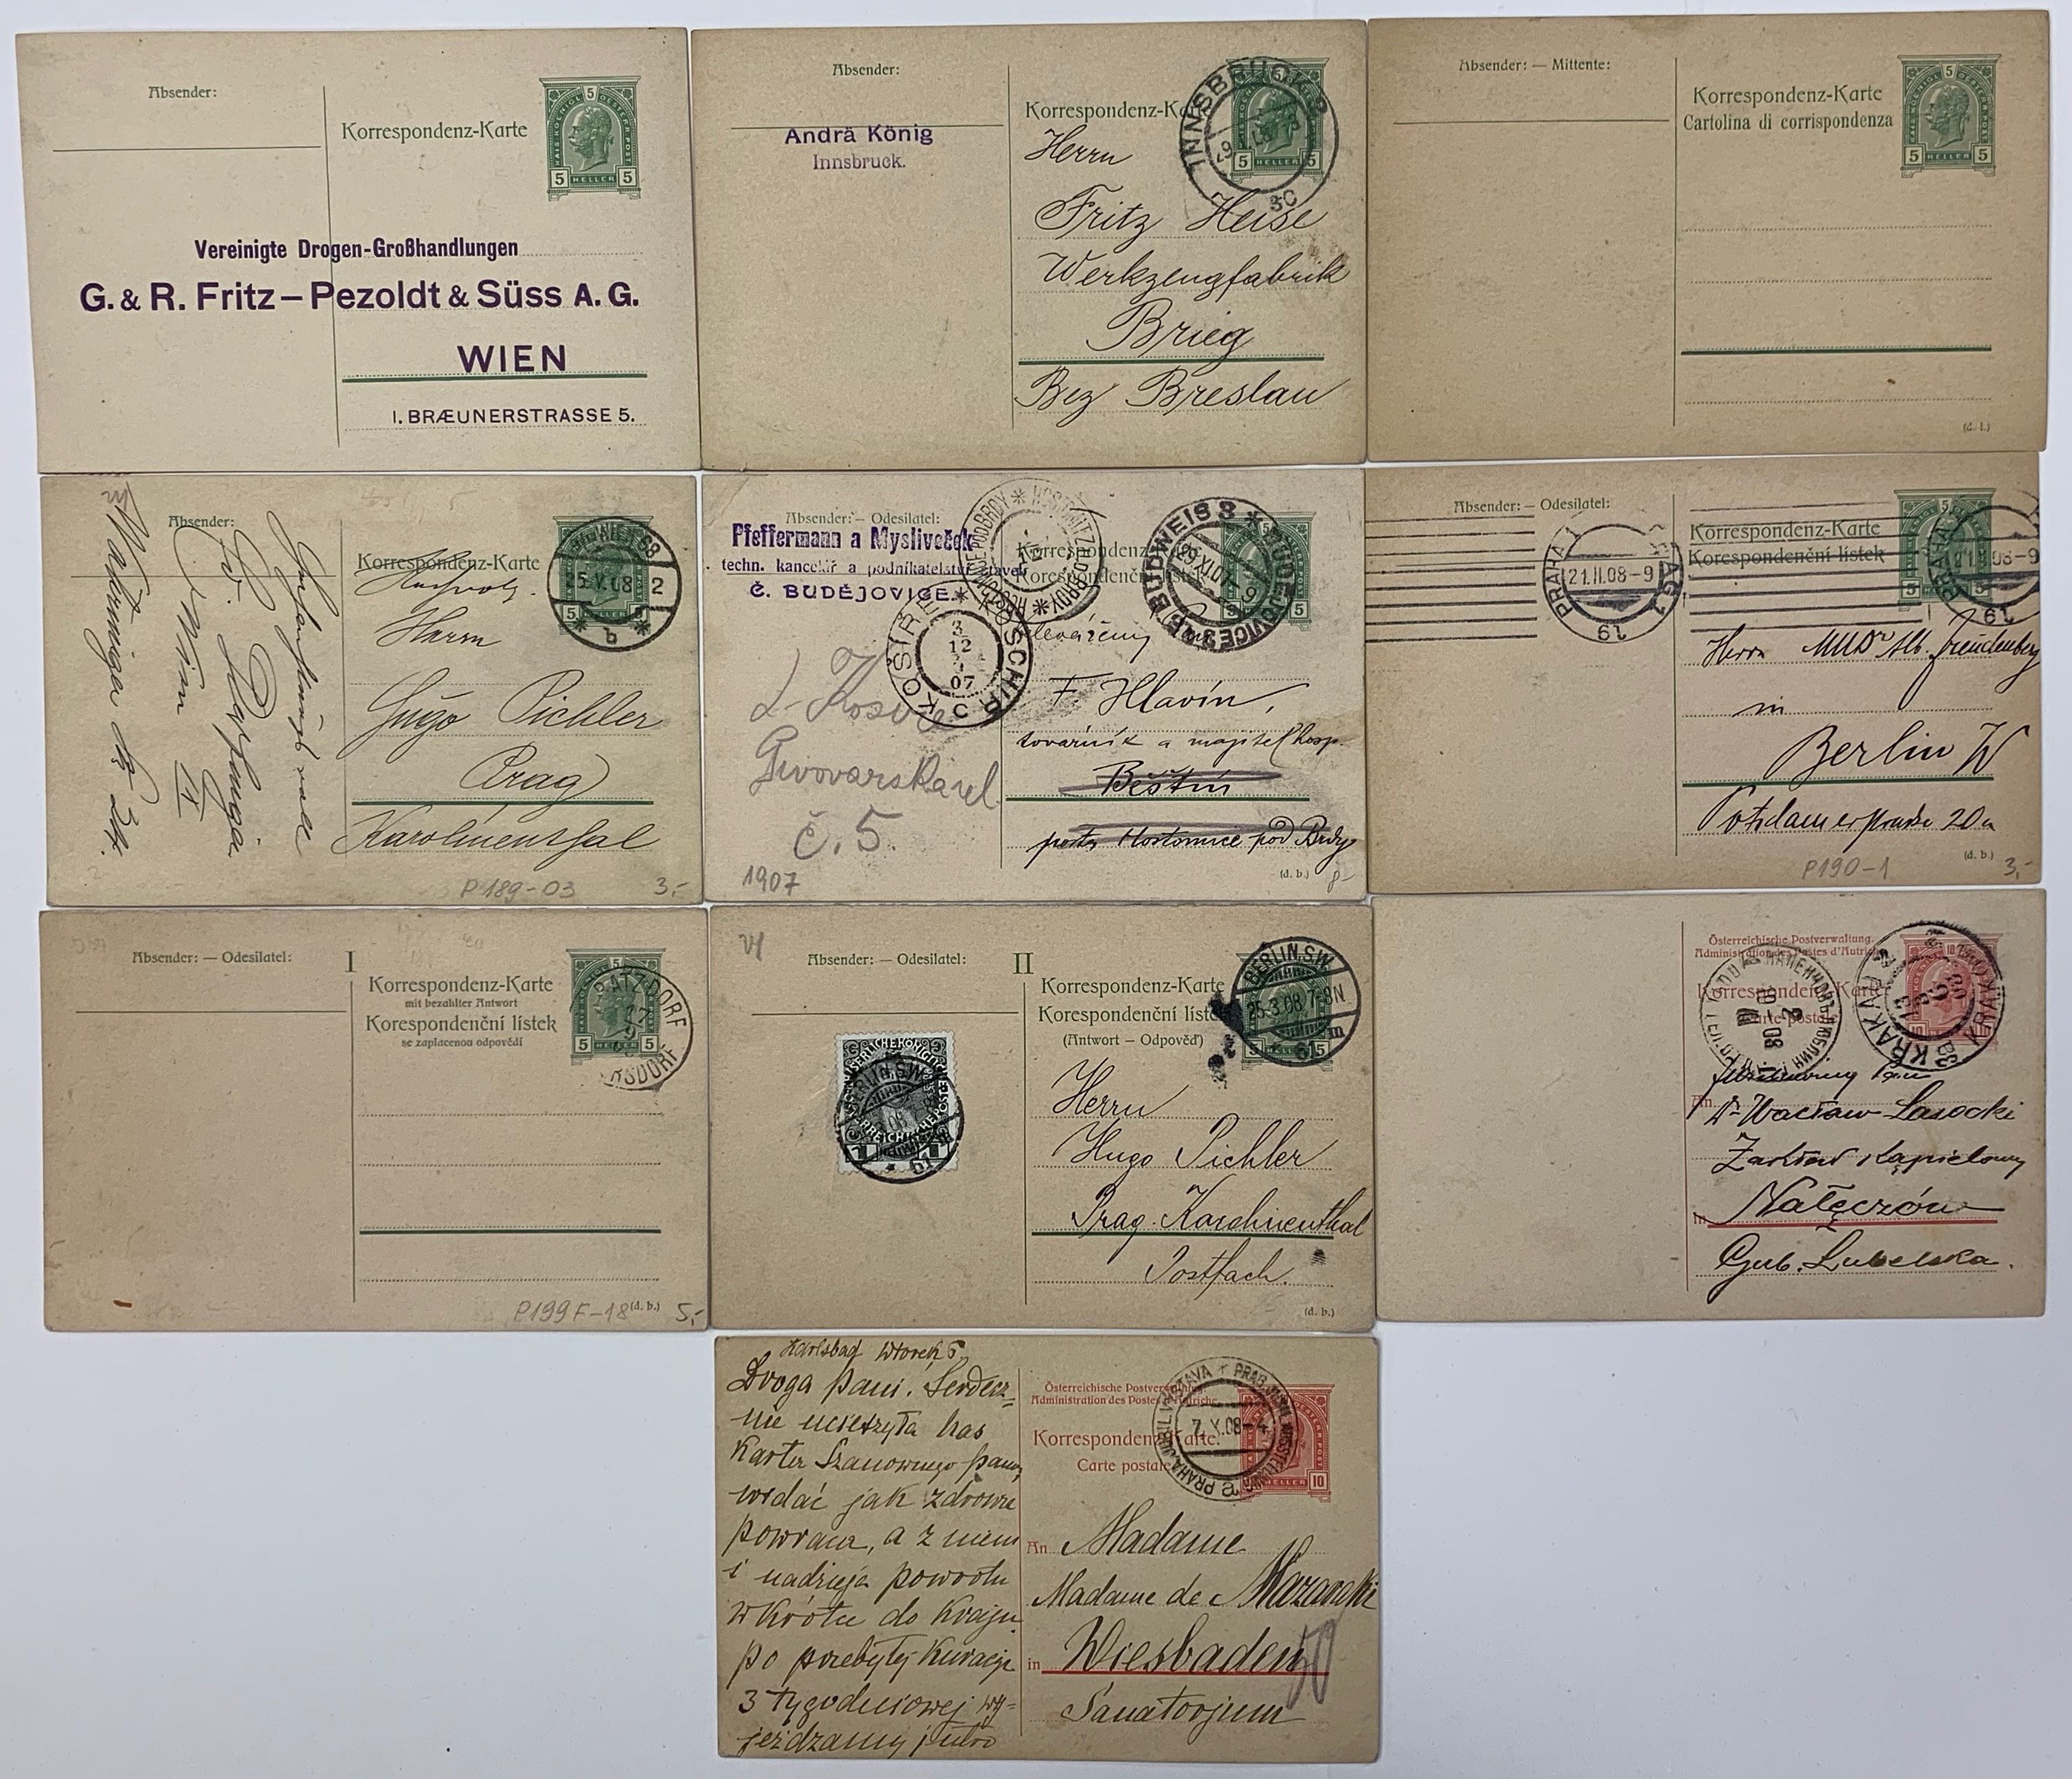 Absender:
Korrespondenz-Karte
5
KAIS. KOENIGL. OESTERR. POST
5 HELLER 5
Vereinigte Drogen-Großhandlungen
G. & R. Fritz – Pezoldt & Süss A. G.
WIEN
I. BRÆUNERSTRASSE 5.
Absender:
Andrä König
Innsbruck.
Korrespondenz-Ka
INNSBRUCK 2
3C
5 5
Herrn
Fritz Heise
Werkzeugfabrik
Brieg
Bez Breslau
Absender: — Mittente:
Korrespondenz-Karte
Cartolina di corrispondenza
5
KAIS. KOENIGL. OESTERR. POST
5 HELLER 5
(d. i.)
Absender:
Wien IX
Korrespondenz-Karte
WIEN 68
25.V.08 2
b
Herrn
Hugo Pichler
Prag
Karolinenthal
P 189-03
3,-
Absender: — Odesilatel:
Pfeffermann a Mysliveček
techn. kancelář a podnikatelství staveb
Č. BUDĚJOVICE
Korrespondenz-Karte
Korespondenční lístek
BUDWEIS 3 * BUDĚJOVICE 3
29.XI.07-9
KOŠÍŘE * KOSCHIR
3
12
07
F. Hlavín,
továrník a majitel hosp.
Běštín
pošta Hostomice pod Brdy
č. 5.
1907
(d. b.)
8-
Absender: — Odesilatel:
Korrespondenz-Karte
Korespondenční lístek
PRAHA 1 PRAG 1
21.II.08-9
19
PRAHA 1
21.II.08-9
19
Herrn MUDr Alb. Freudenberg
in
Berlin W
Potsdamerstrasse 20a
P190-1
(d. b.)
3,-
Absender: — Odesilatel:
I
Korrespondenz-Karte
mit bezahlter Antwort
Korespondenční lístek
se zaplacenou odpovědí
5
5 HELLER 5
RATZDORF
RSDORF
P199F-18
(d. b.)
5,-
VI
Absender: — Odesilatel:
II
Korrespondenz-Karte
Korespondenční lístek
(Antwort — Odpověď)
BERLIN.S.W.
25.3.08.7-8N
* 61 m
BERLIN.S.W.
* 61
Herrn
Hugo Pichler
Prag-Karolinenthal
Postfach.
(d. b.)
Österreichische Postverwaltung.
Administration des Postes d'Autriche
Korrespondenz-Karte
Carte postale
KRAKAU KRAKÓW
An
Dr Wacław Lasocki
Zakład Kąpielowy
in Nałęczów
Gub. Lubelska.
Karlsbad Wtorek 6.
Droga Pani. Serdecz=
nie ucieszyła nas
Karta Szanownego Pana,
widać jak zdrowie
powraca, a z niem
i nadzieja powrotu
wkrótce do kraju.
po przebytej kuracji
3 tygodniowej wy=
jeżdzamy jutro
Österreichische Postverwaltung.
Administration des Postes d'Autriche.
Korrespondenz-Karte.
Carte postale
PRAHA-JUBIL.VÝSTAVA * PRAG.JUBIL.AUSSTELLUNG
7.X.08-4
HELLER 10
An Madame
Madame de Mazaraki
in Wiesbaden
Sanatorjum
50